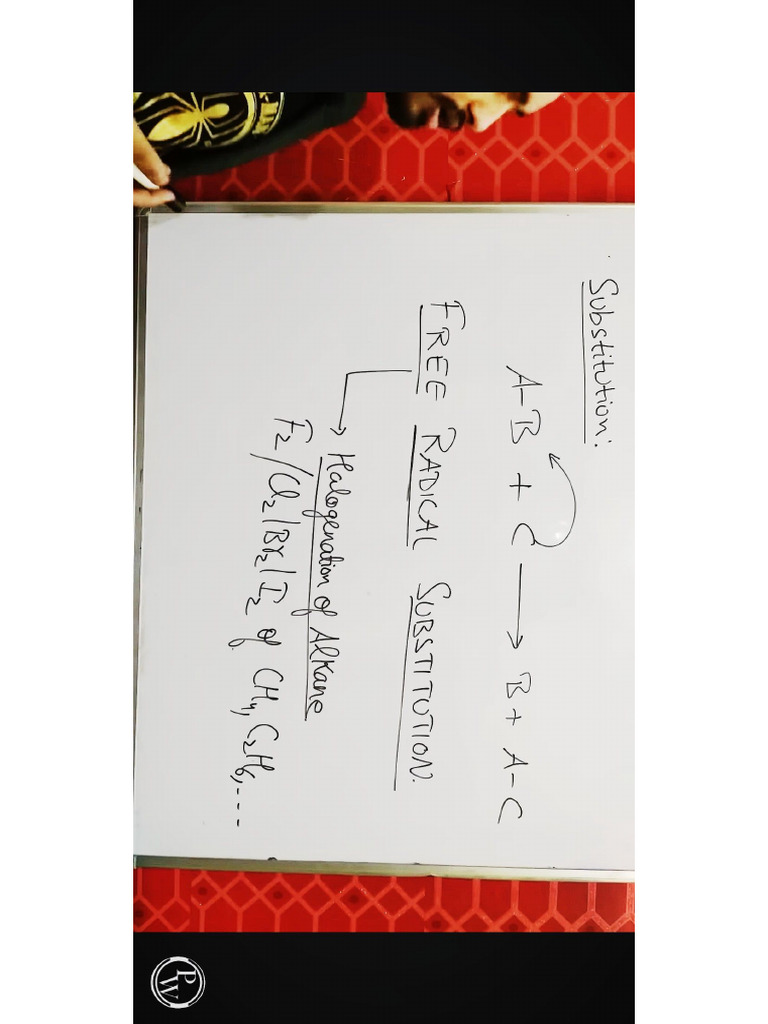 Substitution:
A-B + C ⟶ B + A-C
FREE RADICAL SUBSTITUTION.
→ Halogenation of Alkane
F2/Cl2/Br2/I2 of CH4, C2H6, ----
PW